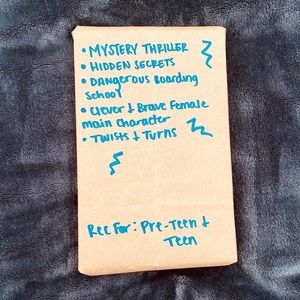 • MYSTERY THRILLER
• HIDDEN SECRETS
• DANGEROUS Boarding
School
• Clever & Brave Female
main Character
• TWISTS & TURNS
Rec For: Pre-Teen &
Teen